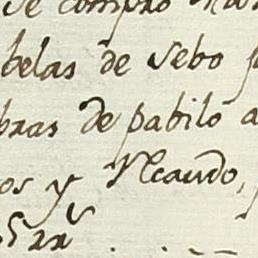 se compro
belas de sebo p
bras de pabilo a
os y Ncaudo,
5 rr^s